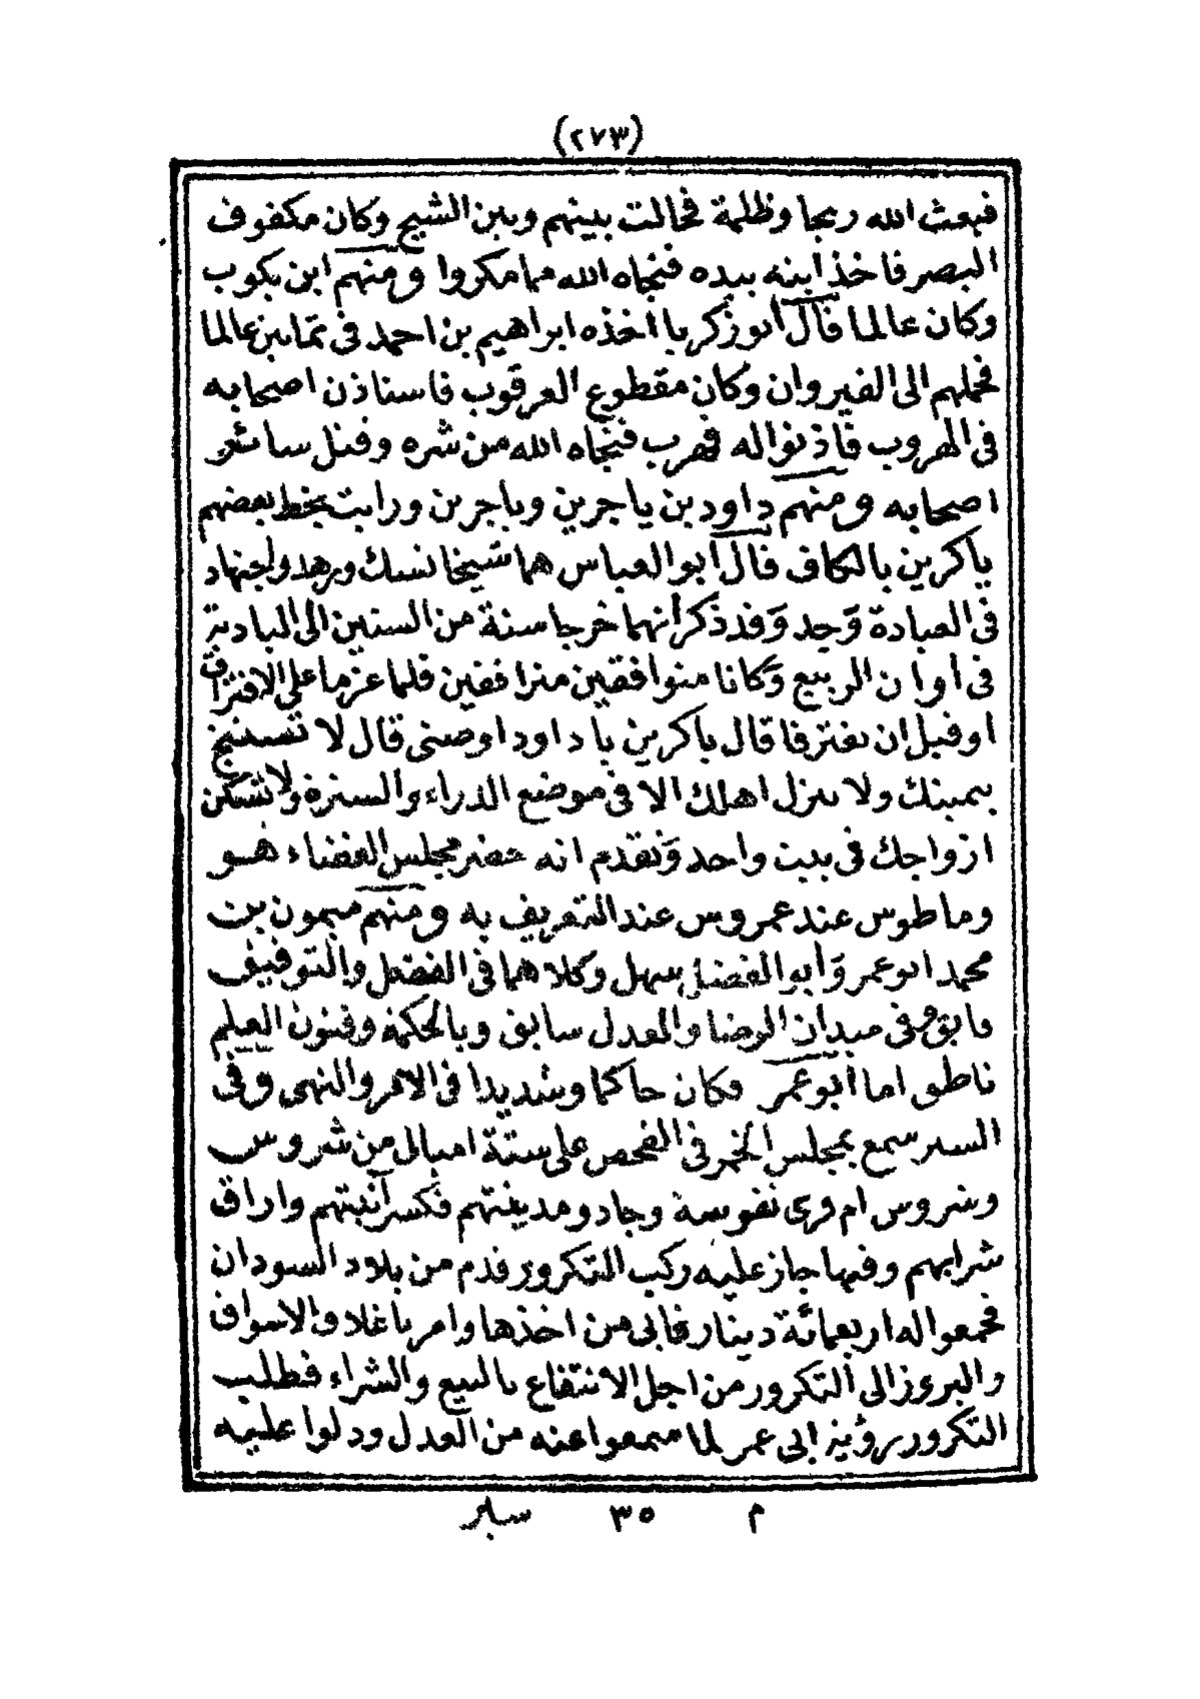 (٢٧٣)
فبعث الله ريحا وظلمة فحالت بينهم وبين الشيخ وكان مكفوف
البصر فاخذ ابنه بيده فنجاه الله مما مكروا ومنهم ابن يكوب
وكان عالما قال أبو زكريا أخذه ابراهيم بن احمد في ثمانين عالما
فحملهم الى القيروان وكان مقطوع العرقوب فاستاذن اصحابه
في الهروب فأذنوا له فهرب فنجاه الله من شره وقتل سائر
اصحابه ومنهم داود بن ياجرين وياجرين ورايت بخط بعضهم
ياكرين بالكاف قال أبو العباس هما شيخا نسك وزهد واجتهاد
في العبادة وجد وقد ذكر أنهما خرجا سنة من السنين الى البادية
في اوان الربيع وكانا متوافقين مترافقين فلما عزما على الافتراق
او قبل ان يفترقا قال ياكرين يا داود اوصني قال لا تستنج
بيمينك ولا تنزل اهلك الا في موضع الذراء والسترة ولا تسكن
ازواجك في بيت واحد وتقدم انه حضر مجلس القضاء هو
وماطوس عند عمروس عند التعريف به ومنهم ميمون بن
محمد ابو عمر وأبو الفضل سهل وكلاهما في الفضل والتوفيق
فايق وفي ميدان الرضا والعدل سابق وبالحكمة وفنون العلم
ناطق اما أبو عمر فكان حاكما وشديدا في الامر والنهي وفي
السير سمع بمجلس الخمر في الفحص على ستة اميال من شروس
وشروس ام قرى نفوسة وجادو مدينتهم فكسر آنيتهم واراق
شرابهم وفيها جاز عليه ركب التكرور قدم من بلاد السودان
فجمعوا له اربعمائة دينار فابى من اخذها وامر باغلاق الاسواق
والبروز الى التكرور من اجل الانتفاع بالبيع والشراء فطلب
التكرور رؤية ابي عمر لما سمعوا عنه من العدل ودلوا عليه
م ٣٥ سير